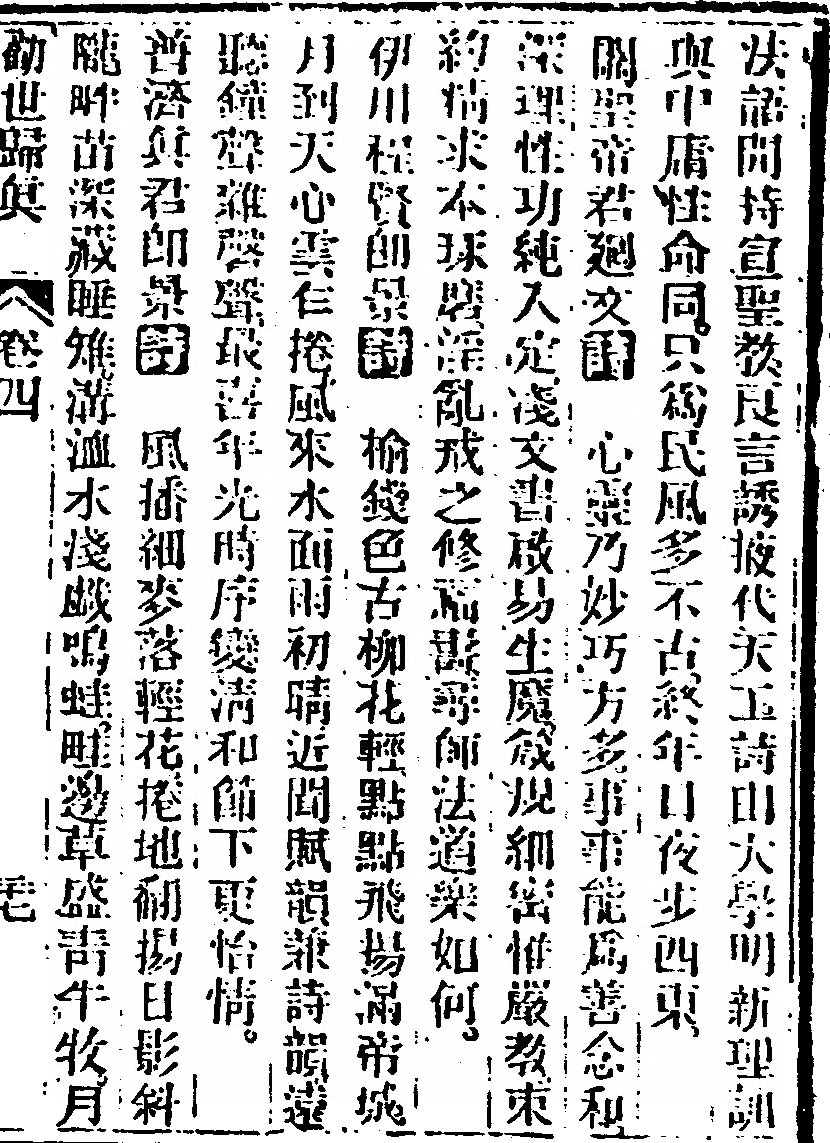 法語開持宣聖教良言誘掖代天工詩由大學明新理訓
與中庸性命同。只為民風多不古終年日夜步西東、
關聖帝君廻文詩　心靈乃妙巧方多事事能為善念和
深理性功純入定淺文書啟易生魔箴規細密惟嚴教束
約精求本琢磨淫亂戒之修福對尋師法道樂如何。
伊川程賢即景詩　榆錢色古柳花輕點點飛揚滿帝城
月到天心雲乍捲風來水面雨初晴近聞賦韻兼詩韻遠
聽鐘聲雜磬聲最喜年光時序變清和節下更怡情。
普濟眞君即景詩　風播細麥落輕花捲地翻揚日影斜
隴畔苗深藏睡雉溝洫水淺戲鳴蛙畦邊草盛靑牛牧月
勸世歸眞　卷四